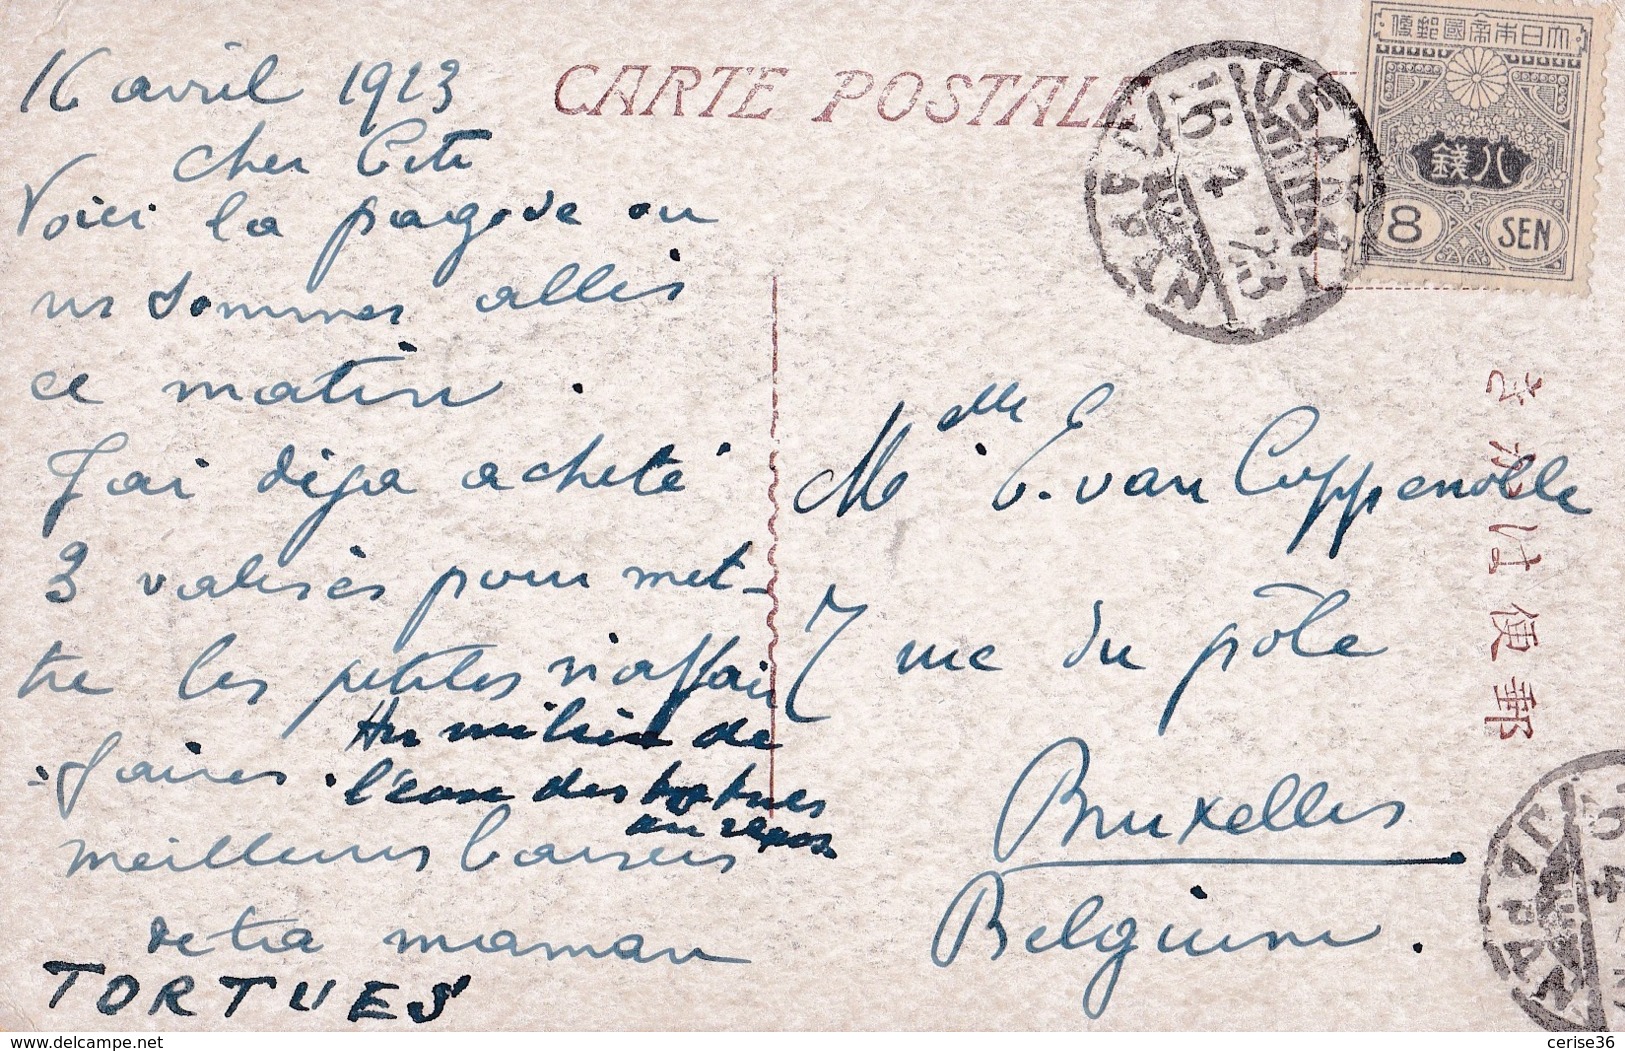 16 avril 1923
CARTE POSTALE
cher
Voici la pagode ou
ns sommes allés
ce matin.
J'ai déja acheté
3 valises pour met-
tre les petites
faires.
Au milieu de
l'eau des tortues
au repos
meilleurs baisers
de ta maman
TORTUES
大日本帝國郵便
八錢
8 SEN
16.4.23
JAPAN
Melle E. van Coppenolle
7 rue du pôle
Bruxelles
Belgium.
きかは便郵
JAPAN
delcampe.net
cerise36